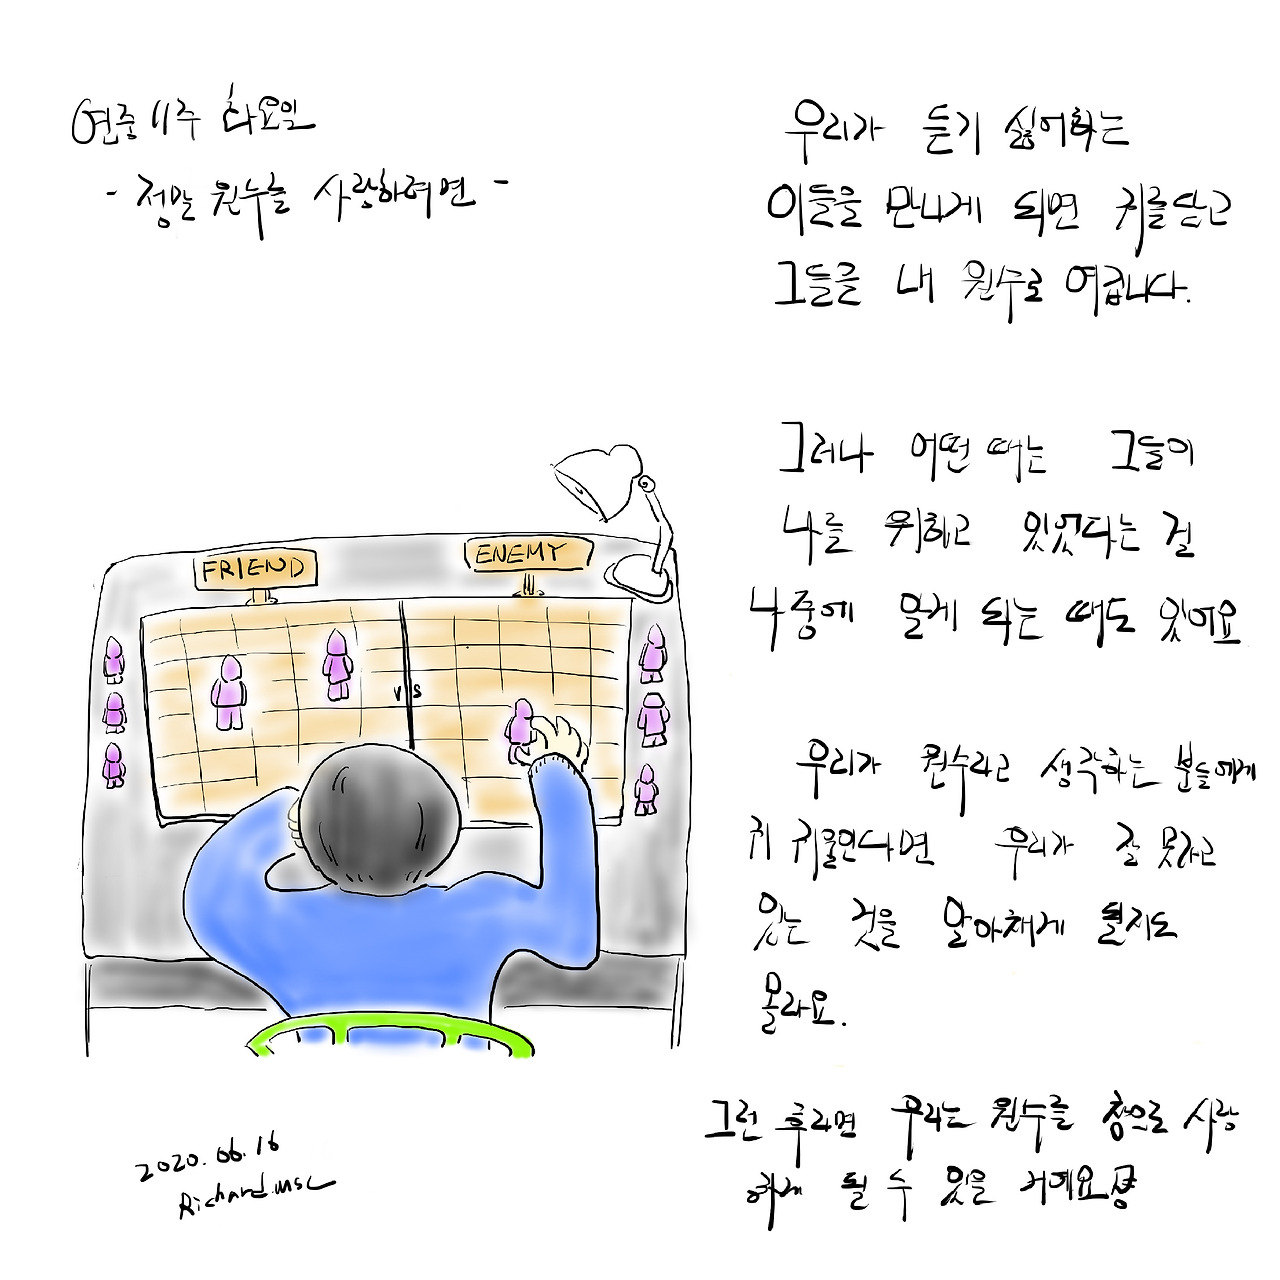 연중 11주 화요일
- 정말 원수를 사랑하려면 -
우리가 듣기 싫어하는
이들을 만나게 되면 귀를 닫고
그들을 내 원수로 여깁니다.
그러나 어떤 때는 그들이
나를 위하고 있었다는 걸
나중에 알게 되는 때도 있어요
우리가 원수라고 생각하는 분들에게
귀 귀울인다면 우리가 잘 못하고
있는 것을 알아채게 될지도
몰라요.
그런 후라면 우리는 원수를 참으로 사랑
하게 될 수 있을 거예요
FRIEND
ENEMY
VS
2020.06.16
Richard.msc